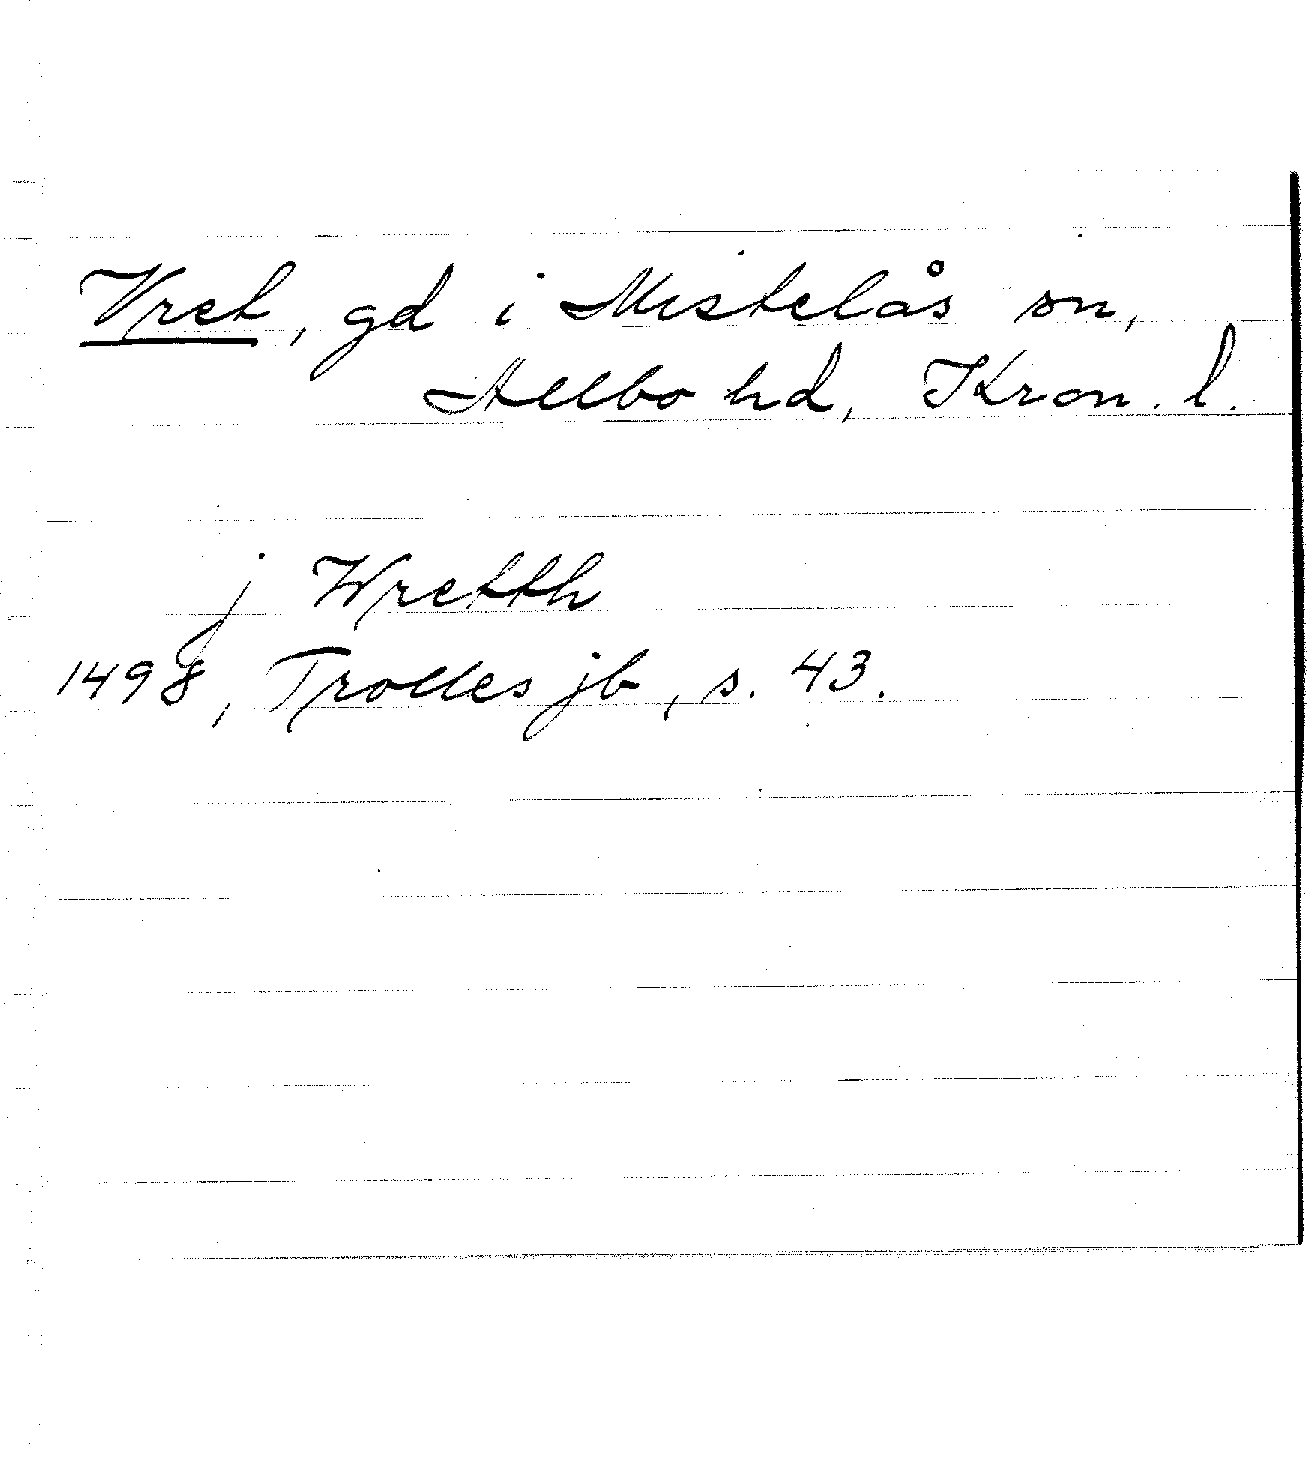 Vret, gd i Mistelås sn,
Allbo hd, Kron. l.
j Wretth
1498, Trolles jb, s. 43.